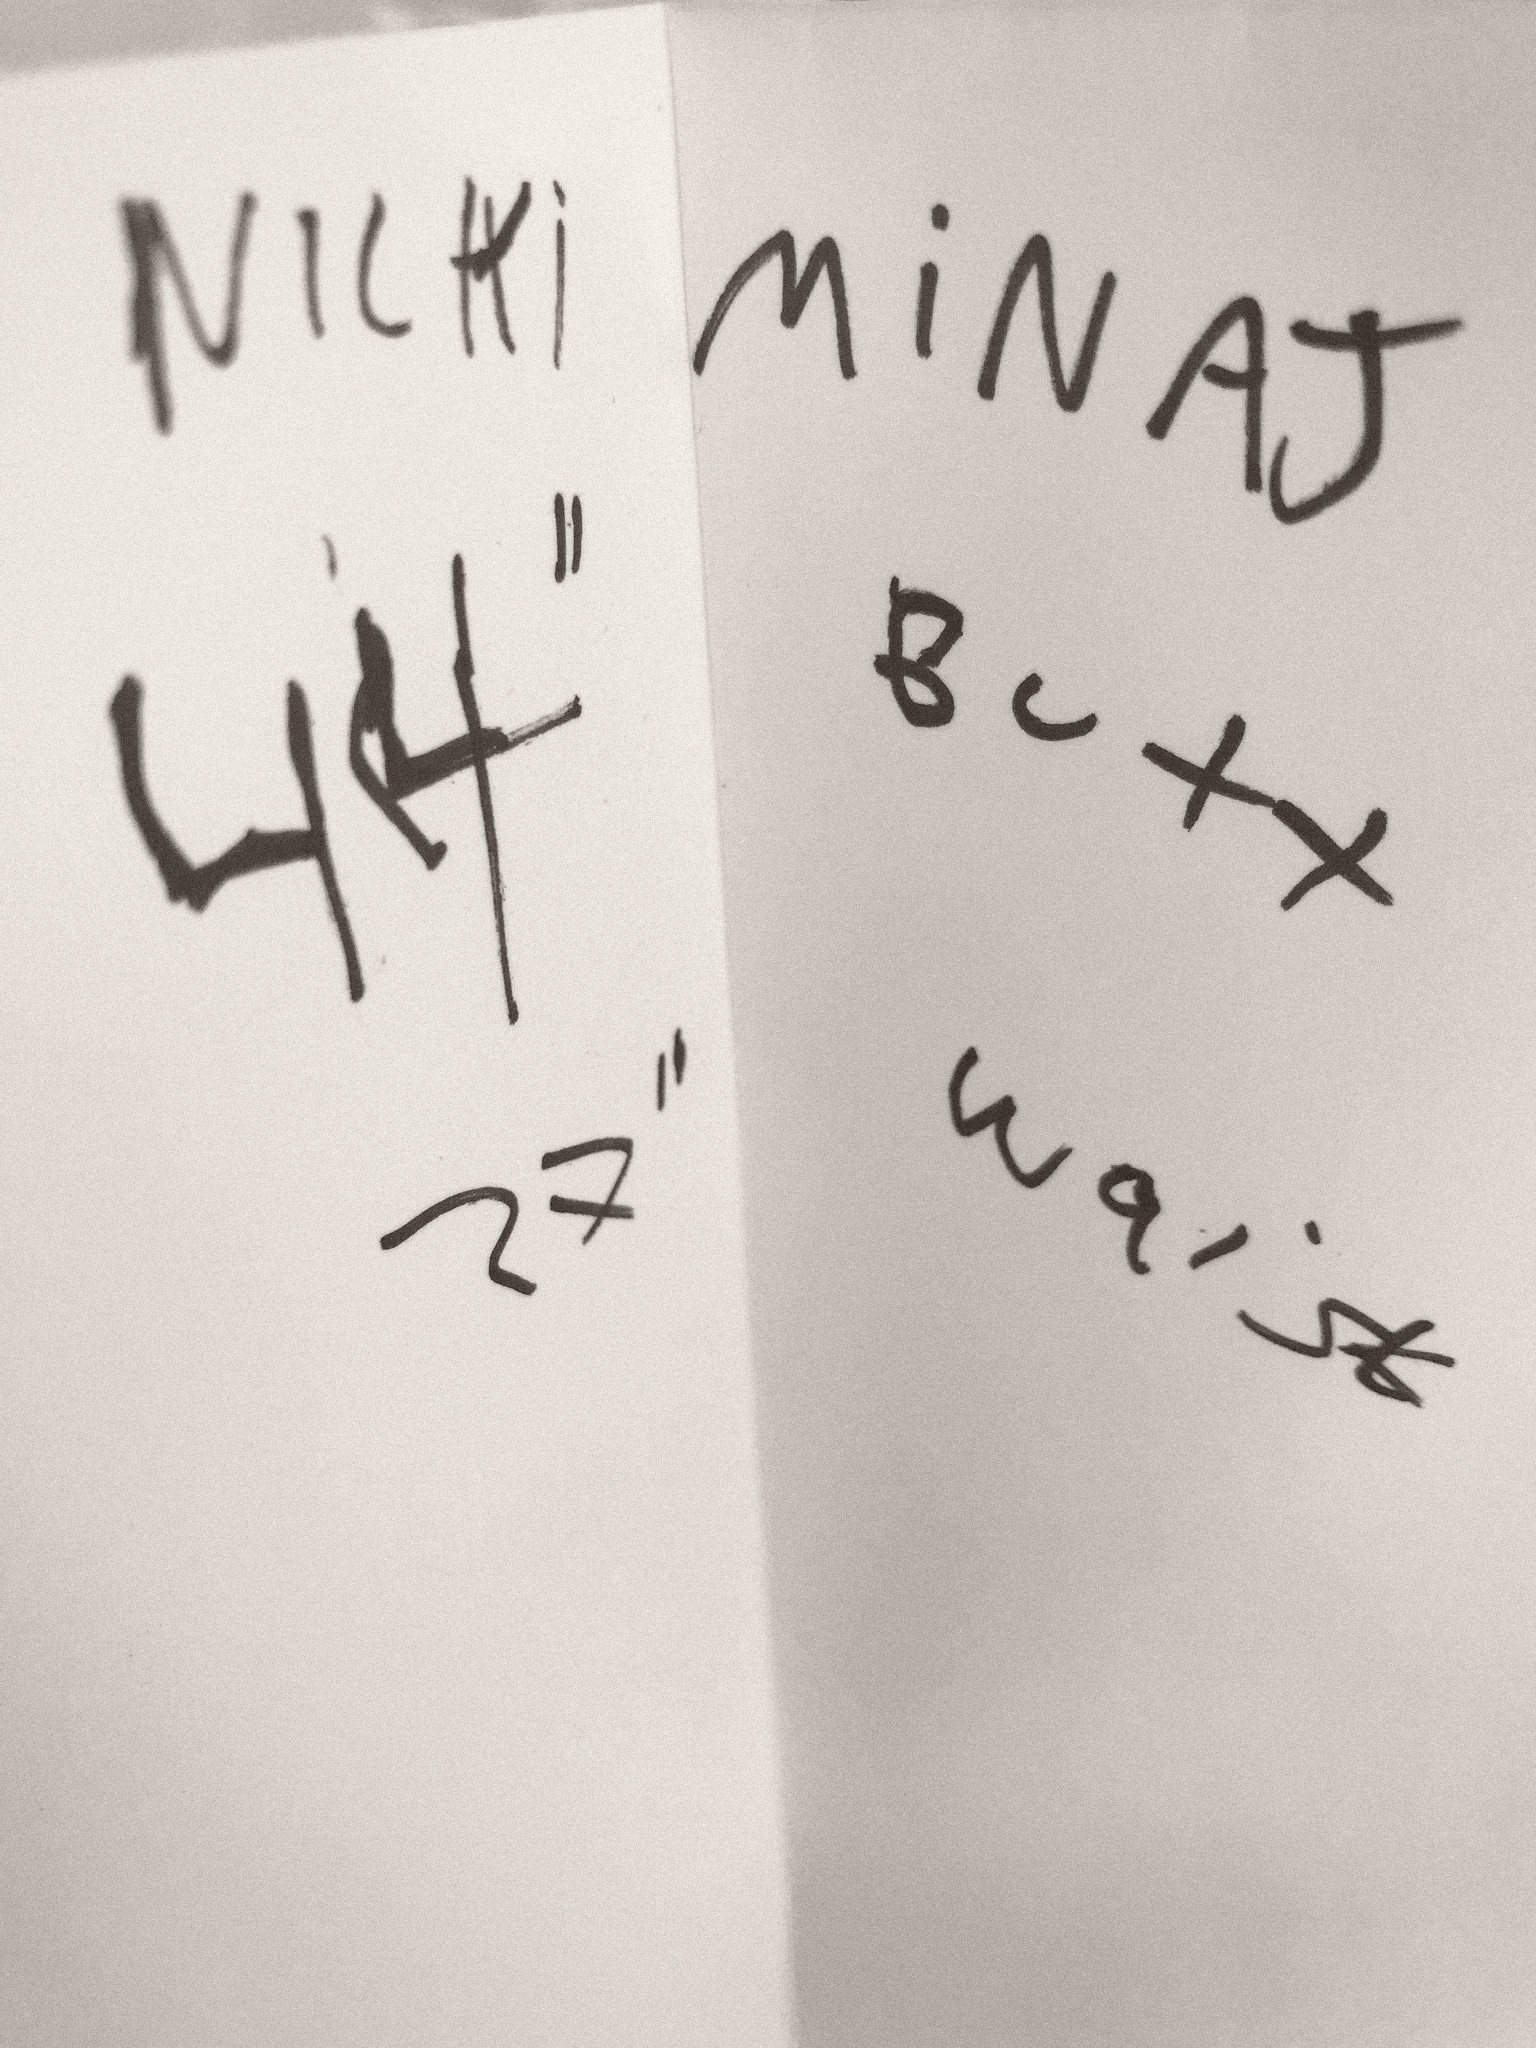 NICKi MiNAJ
44" Butt
27" Waist